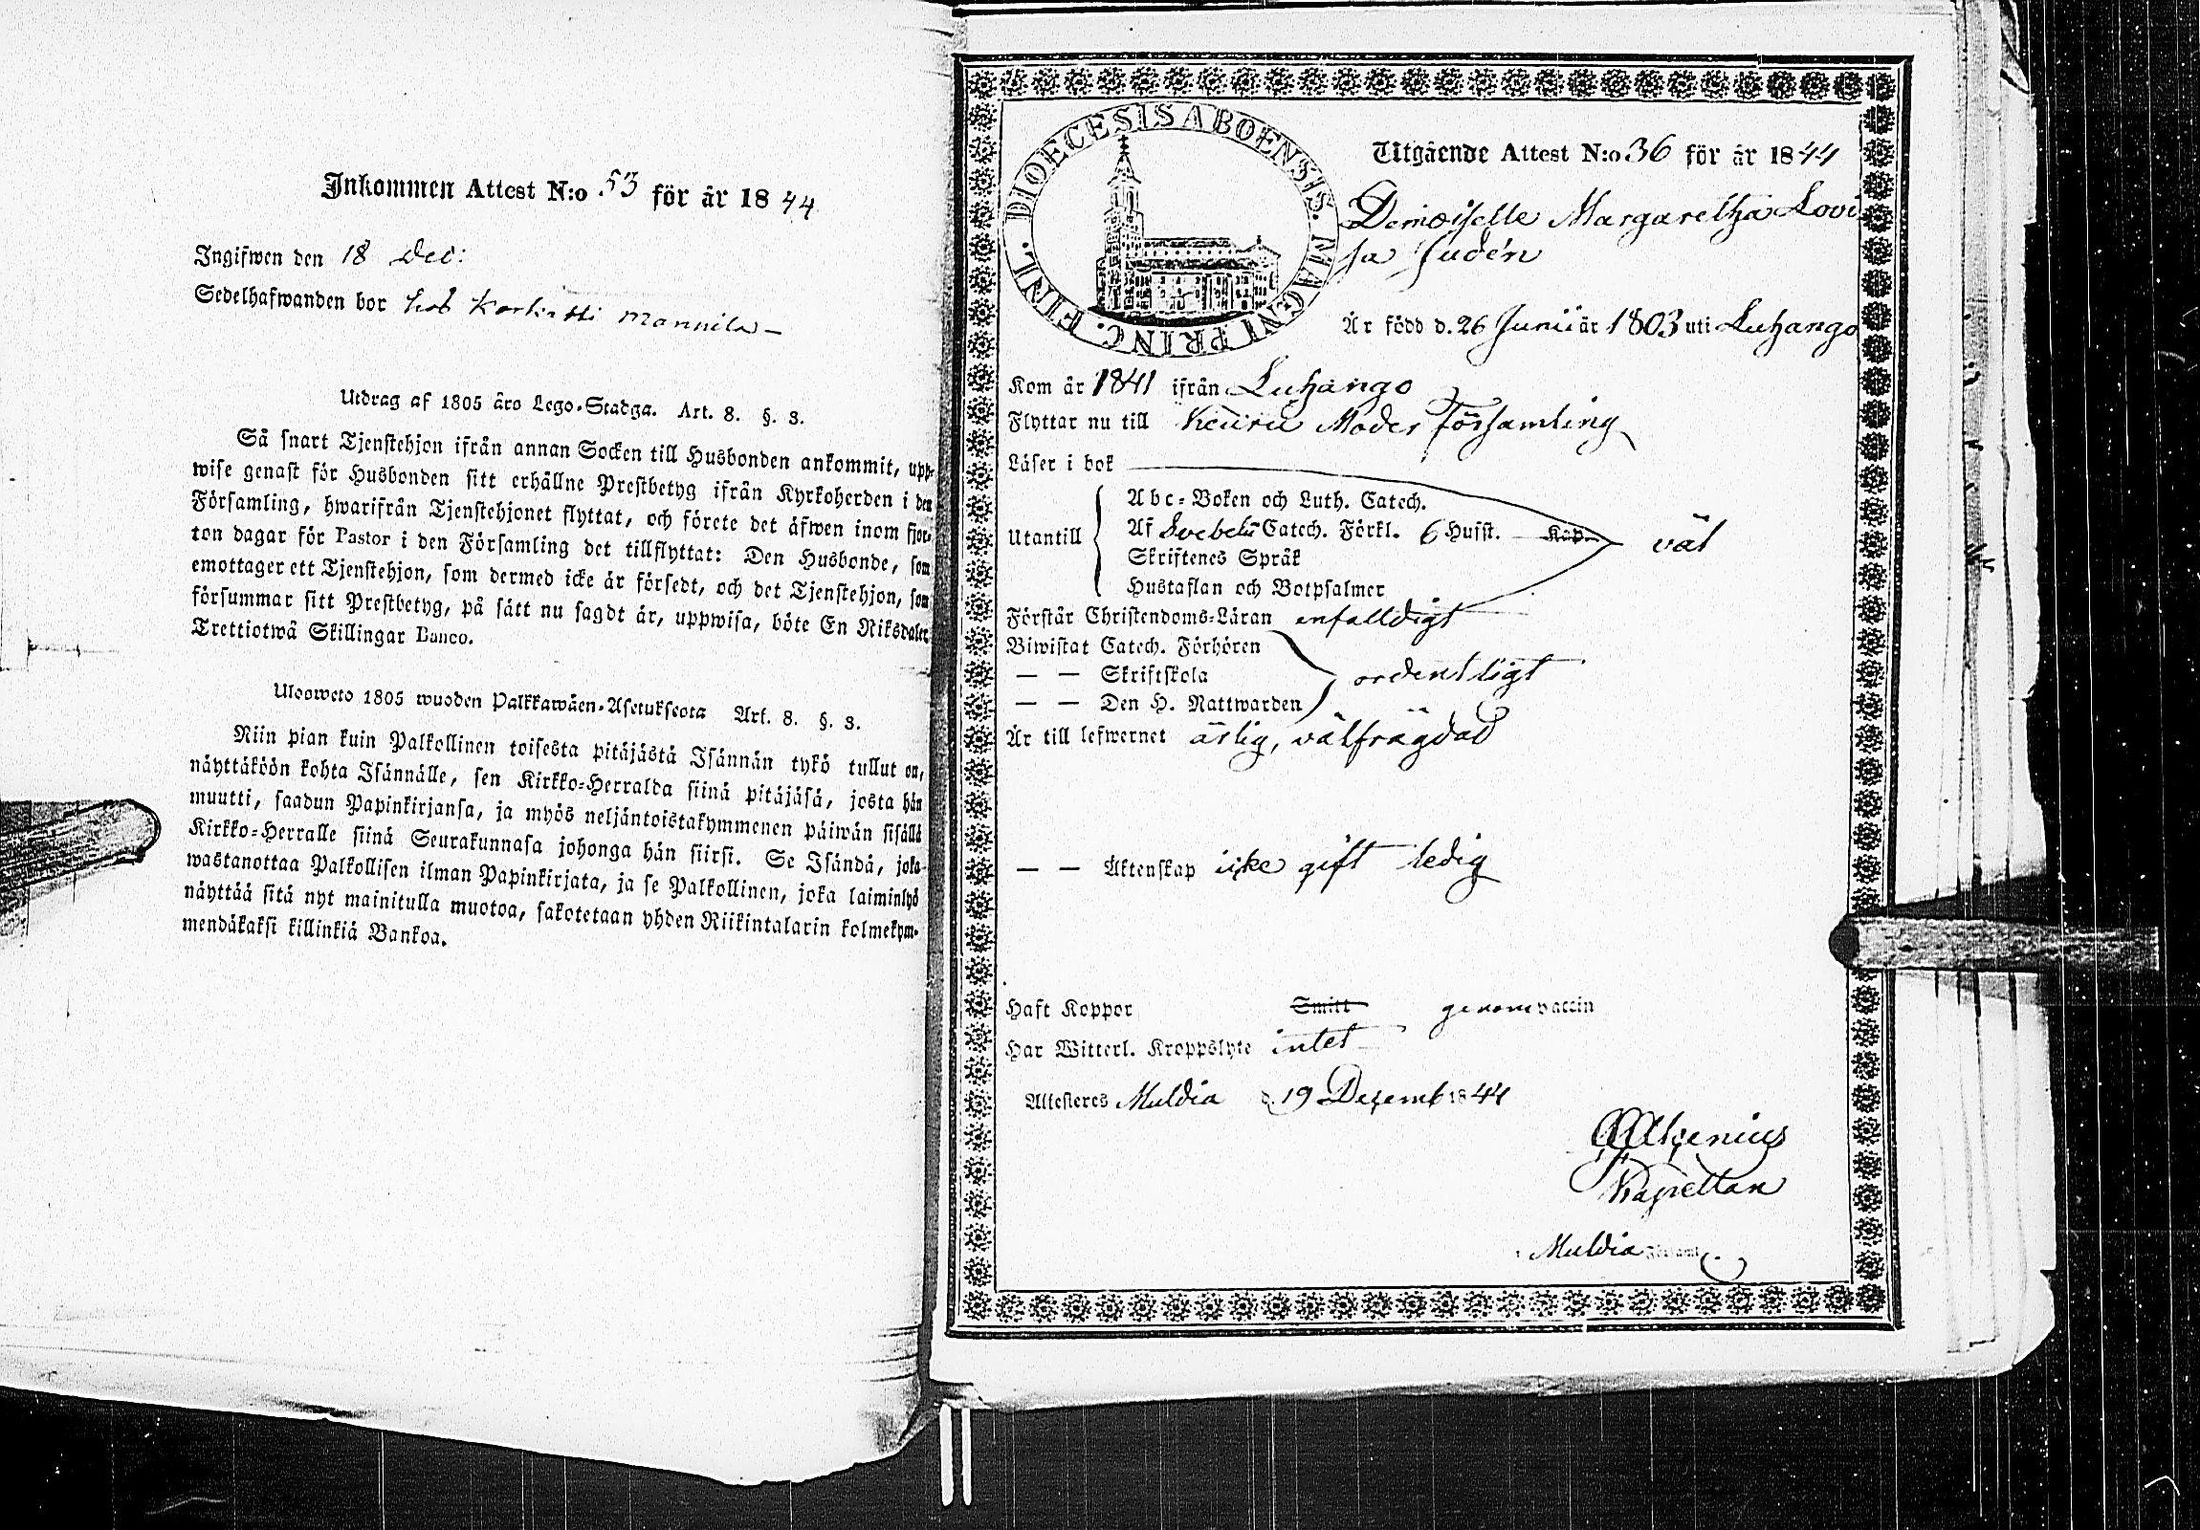 Inkommen Attest N:o 53 för år 1844
Ingifwen den 18 Dec:
Sedelhafwanden bor hos
Utdrag af 1805 åro Lego-Stadga. Art. 8. §. 3.
Så snart Tjenstehjon ifrån annan Socken till Husbonden ankommit, upp-
wise genast för Husbonden sitt erhållne Prestbetyg ifrån Kyrkoherden i den
Församling, hwarifrån Tjenstehjonet flyttat, och förete det äfwen inom fjor-
ton dagar för Pastor i den Församling det tillflyttat: Den Husbonde, som
emottager ett Tjenstehjon, som dermed icke är försedt, och det Tjenstehjon, som
försummar sitt Prestbetyg, på sätt nu sagdt är, uppwisa, böte En Riksdaler
Trettiotwå Skillingar Banco.
Uloosweto 1805 wuoden Palkkawäen-Asetukseota Art. 8. §. 3.
Niin pian kuin Palkollinen toisesta pitäjästä Isännän tykö tullut on,
näyttäköön kohta Isännälle, sen Kirkko-Herralda siinä pitäjäsä, josta hän
muutti, saadun Papinkirjansa, ja myös neljäntoistakymmenen päiwän sisällä
Kirkko-Herralle siinä Seurakunnasa johonga hän siirsi. Se Isändä, joka
wastanottaa Palkollisen ilman Papinkirjata, ja se Palkollinen, joka laiminlyö
näyttää sitä nyt mainitulla muotoa, sakotetaan yhden Riikintalarin kolmekym-
mendäkaksi killinkiä Bankoa.
DIOECESIS ABOENSIS. MAGNI PRINC. FINL.
Utgående Attest N:o 36 för år 1844
Demoiselle Margaretha Lovi
sa Judén
Är född d. 26 Junii år 1803 uti Luhango
Kom år 1841 ifrån Luhango
Flyttar nu till Keuru Moder Församling
Läser i bok
Utantill
Abc-Boken och Luth. Catech.
Af Svebelii Catech. Förkl. 6 Hufst. Kap. väl
Skriftenes Språk
Hustaflan och Botpsalmer
Förstår Christendoms-Läran enfalldigt
Biwistat Catech. Förhören
— — Skriftskola ordentligt
— — Den H. Nattwarden
Är till lefwernet ärlig, välfrägdad
— — Äktenskap icke gift ledig
Haft Koppor Smitt genom vaccin
Har Witterl. Kroppslyte intet
Attesteres Muldia d. 19 Decemb 1844
Alcenius
Kapellan
i Muldia Församl.